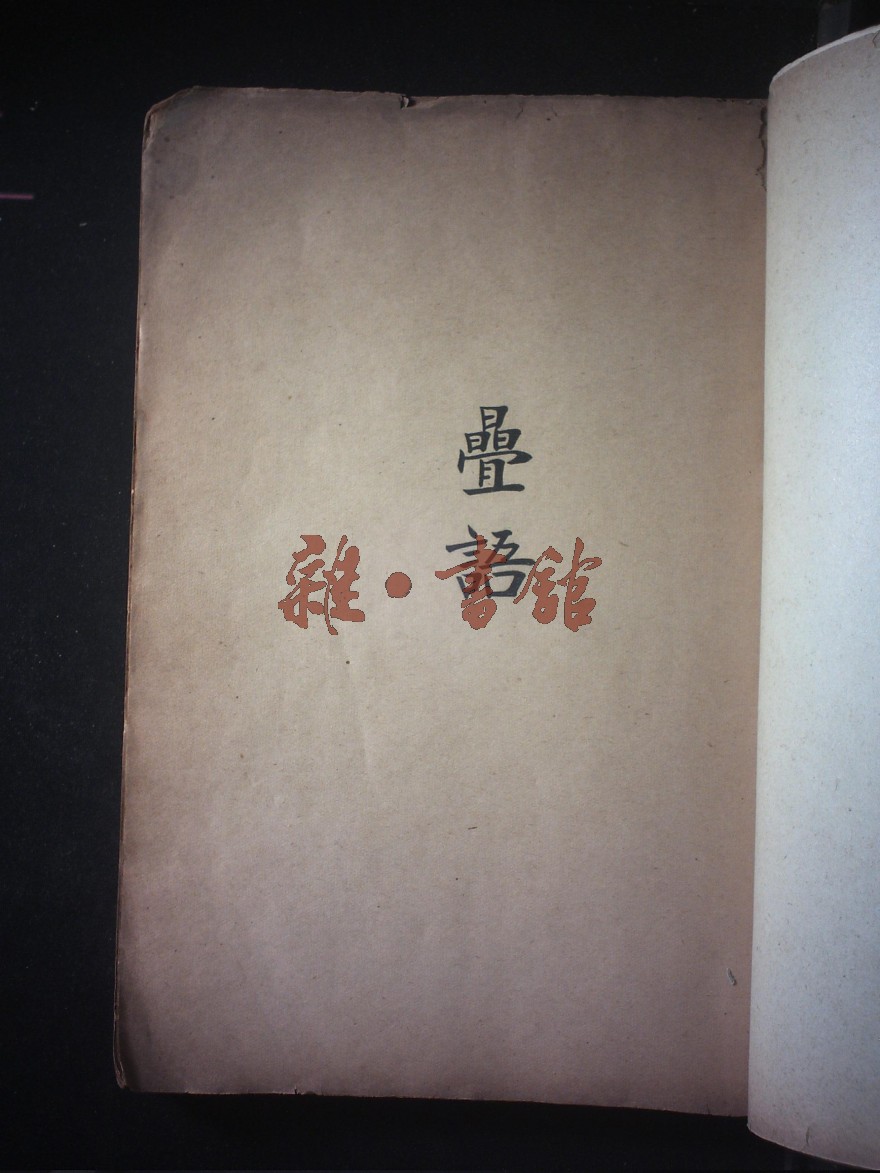 疊語
雜·書館